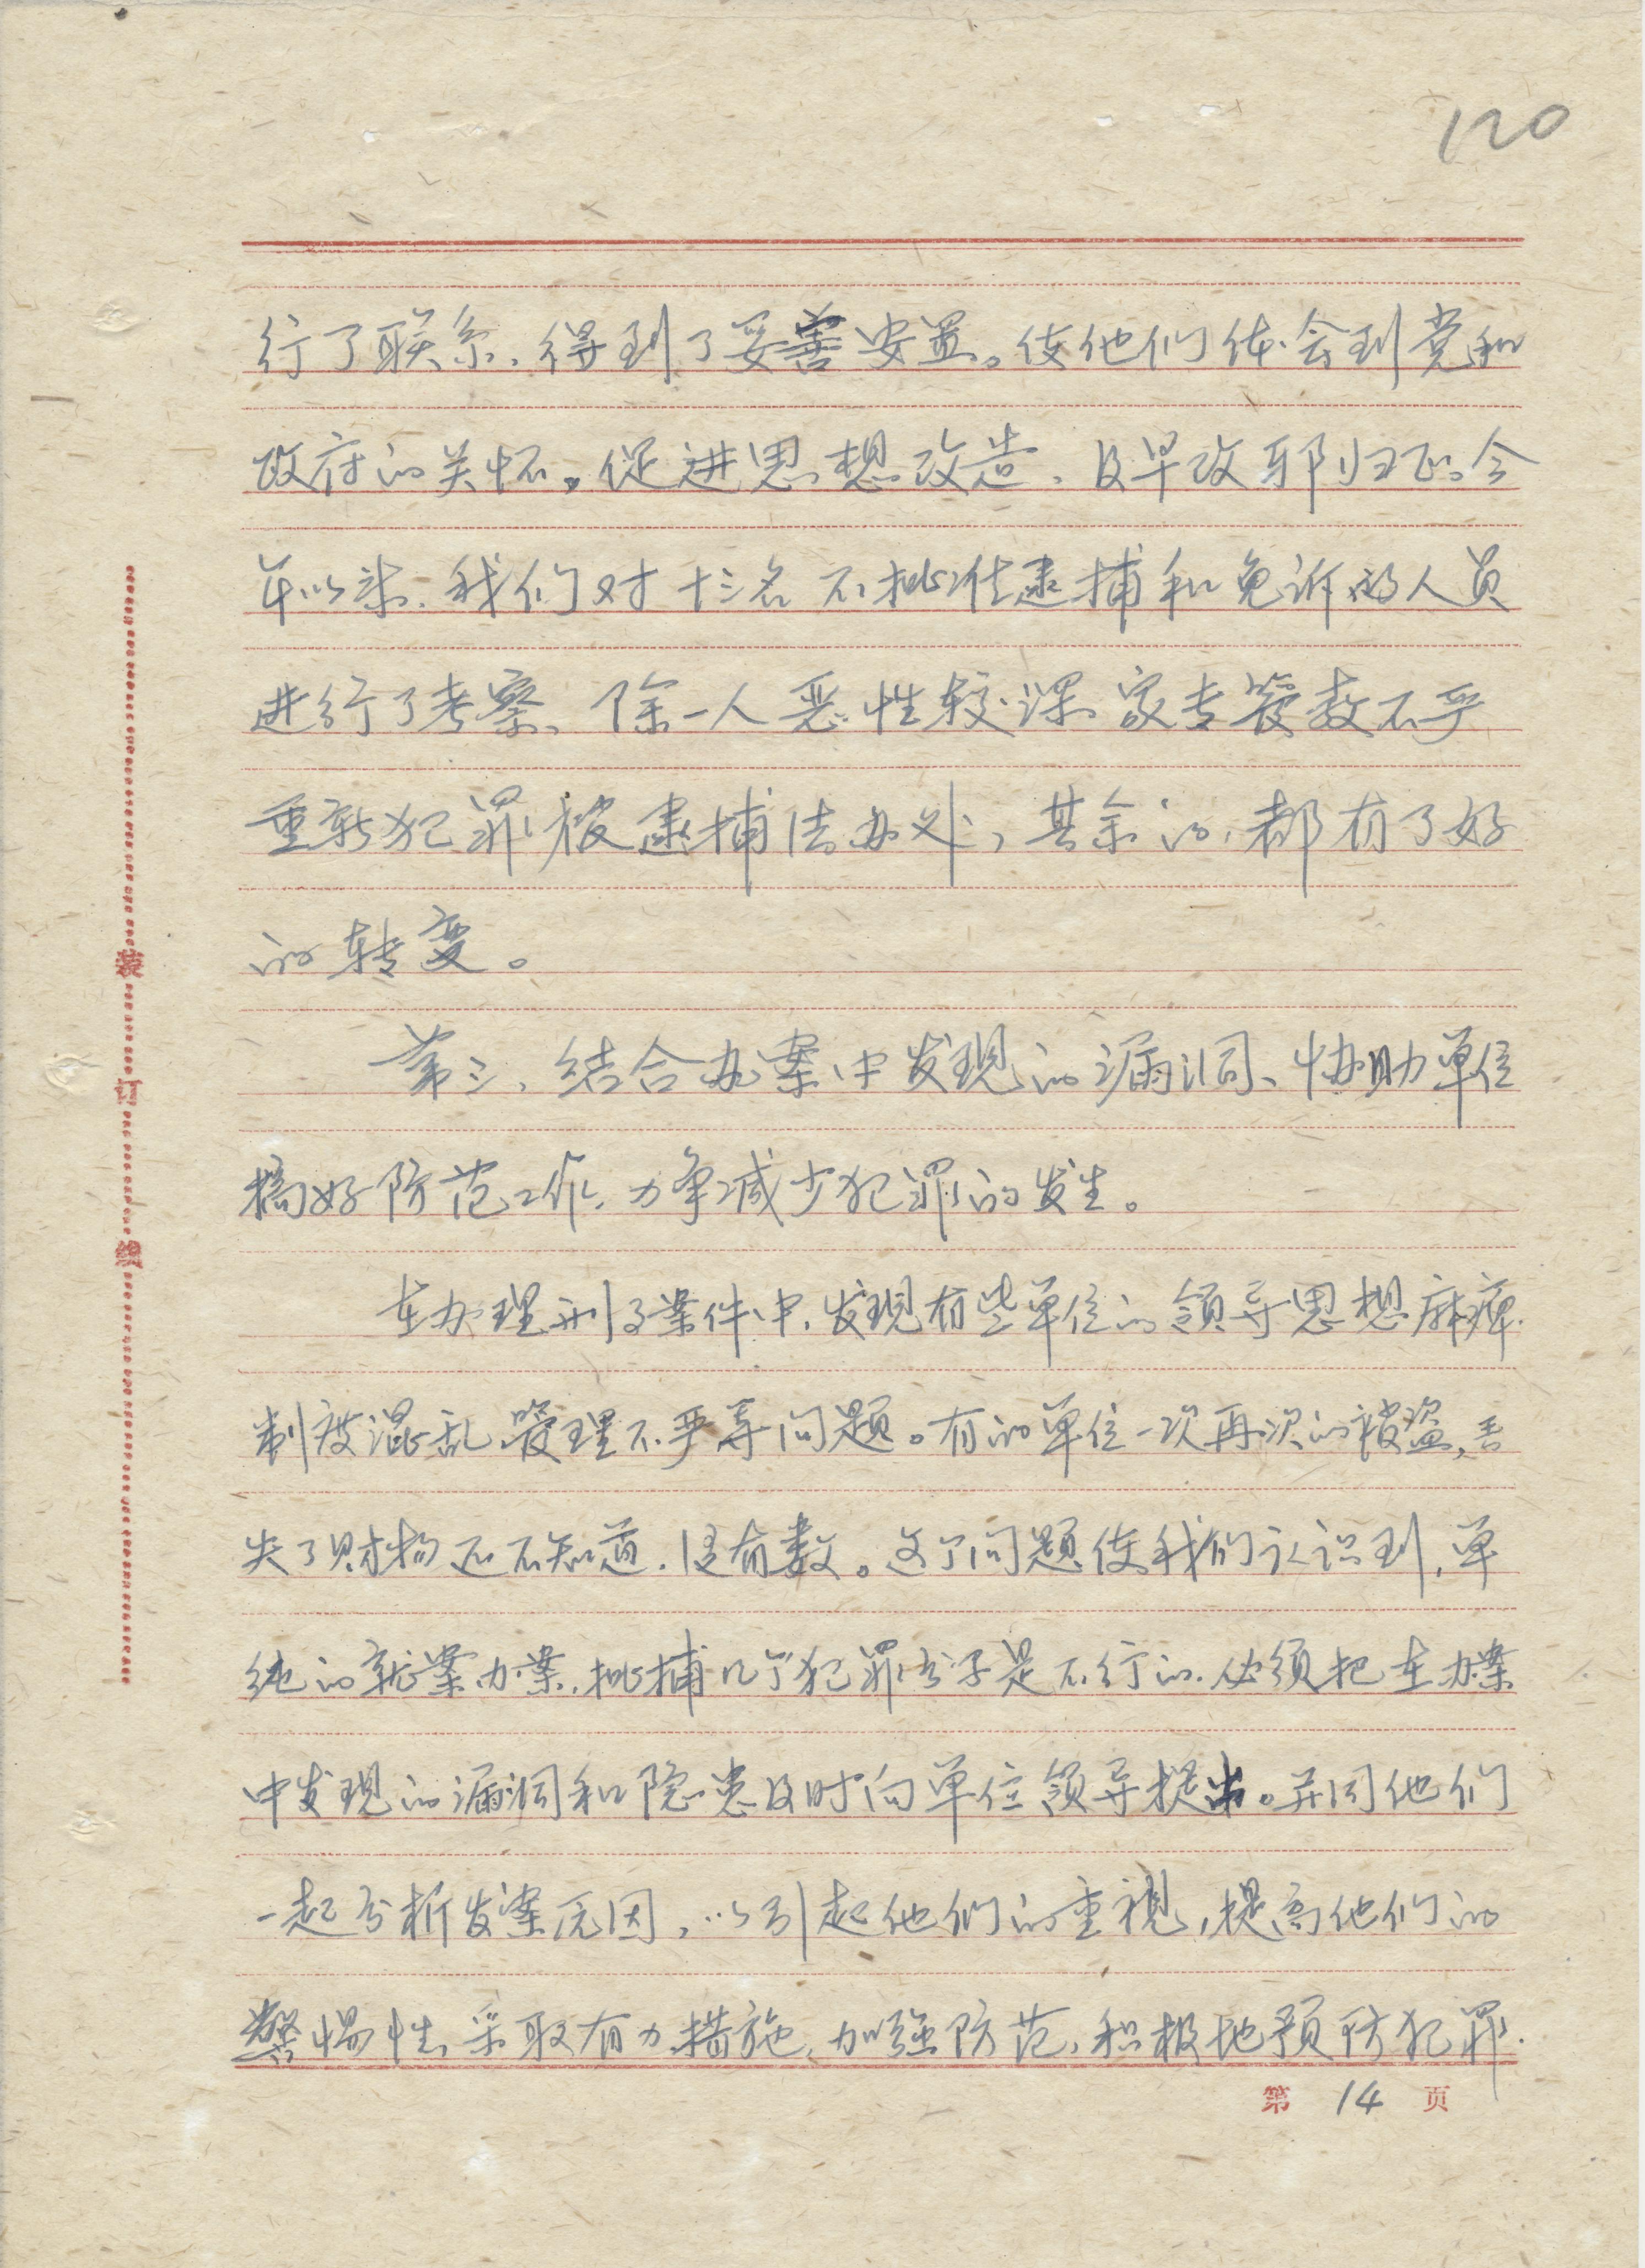 120
行了联系、得到了妥善安置。使他们体会到党和
政府的关怀。促进思想改造、及早改邪归正。今
年以来、我们对十三名不批准逮捕和免诉的人员
进行了考察、除一人恶性较深家长管教不严
重新犯罪被逮捕法办外，其余的，都有了好
的转变。
第三、结合办案中发现的漏洞、协助单位
搞好防范工作，力争减少犯罪的发生。
在办理刑事案件中，发现有些单位的领导思想麻痹.
制度混乱管理不严等问题。有的单位一次再次的被盗，丢
失了财物还不知道.没有数。这个问题使我们认识到，单
纯的就案办案，批捕几个犯罪分子是不行的.必须把在办案
中发现的漏洞和隐患及时向单位领导提出。并同他们
一起分析发案原因，以引起他们的重视，提高他们的
警惕性，采取有力措施，加强防范，积极地预防犯罪.
第 14 页
装订线